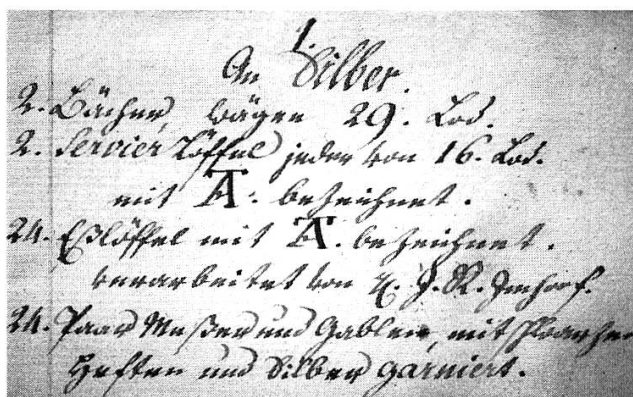 1.
An Silber.
2. Bächer, wägen 29. Lod.
2. Servier Löffel jeder von 16. Lod.
mit A. bezeichnet.
24. Eßlöffel mit A. bezeichnet.
verarbeitet von J. R. Imhoof.
24. Paar Meßer und Gablen, mit schwarzen
Heften und Silber garniert.